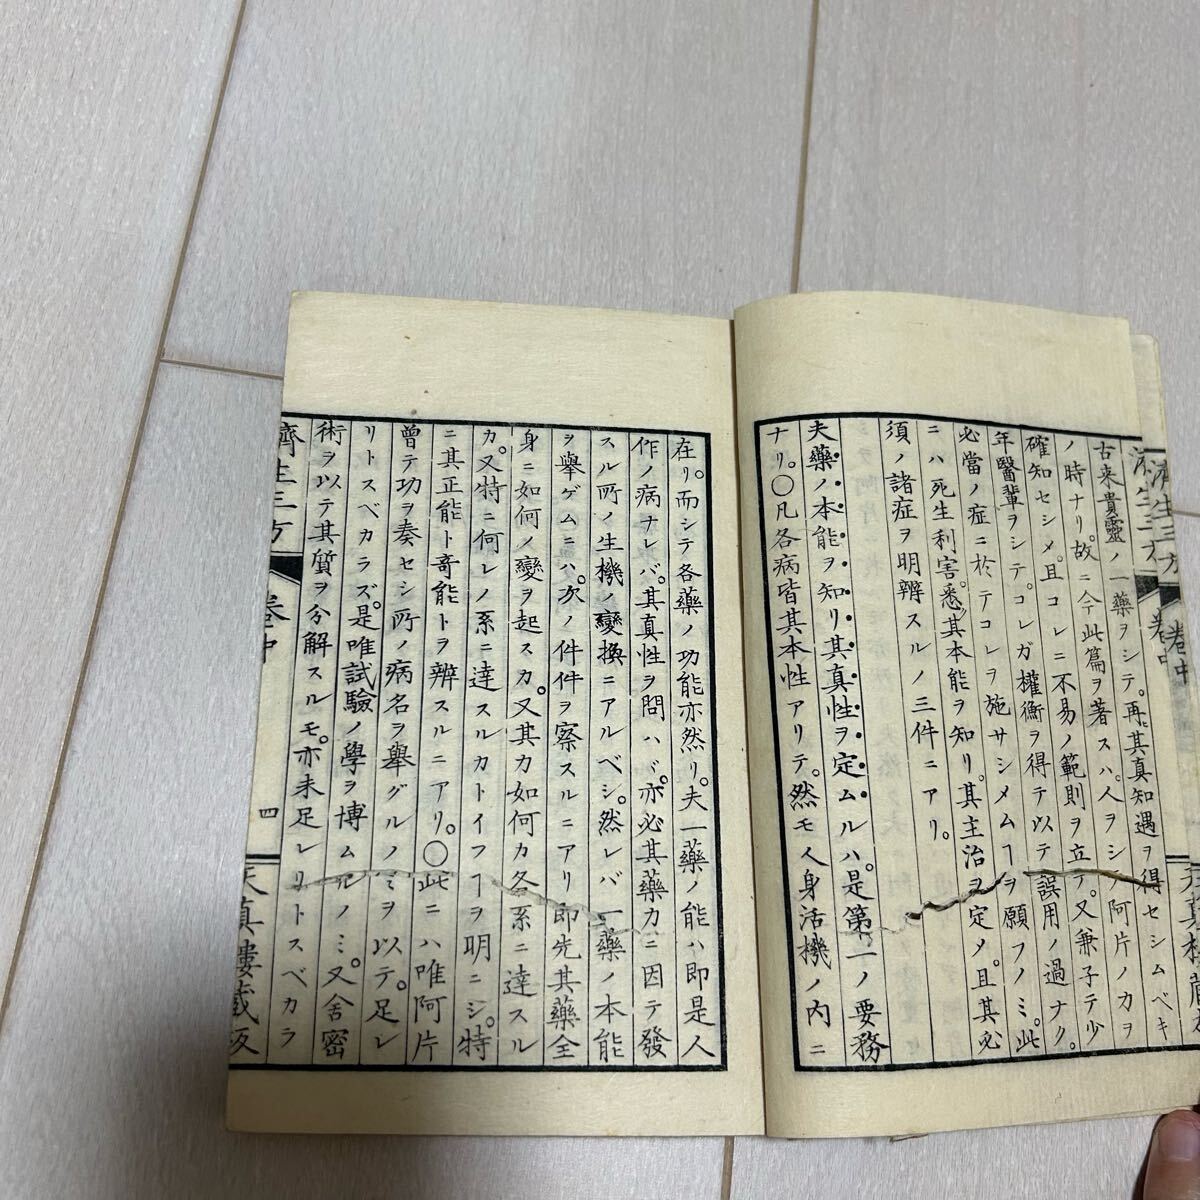 濟生三方 卷中
古来貴靈ノ一藥ヲシテ。再其真知遇ヲ得セシムベキ
ノ時ナリ。故ニ今此篇ヲ著スハ。人ヲシテ阿片ノカヲ
確知セシメ。且コレニ不易ノ範則ヲ立テ。又兼子テ少
年醫輩ヲシテ。コレガ權衡ヲ得テ以テ誤用ノ過ナク。
必當ノ症ニ於テコレヲ施サシメムヿヲ願フノミ。此
ニハ死生利害。悉其本能ヲ知リ。其主治ヲ定メ。且其必
須ノ諸症ヲ明辨スルノ三件ニアリ。
夫藥ノ本能ヲ知リ其真性ヲ定ムルハ。是第一ノ要務
ナリ。〇凡各病皆其本性アリテ。然モ人身活機ノ内ニ
在リ。而シテ各藥ノ功能亦然リ。夫一藥ノ能ハ即是人
作ノ病ナレバ。其真性ヲ問ハヾ。亦必其藥力ニ因テ發
スル所ノ生機ノ變換ニアルベシ。然レバ一藥ノ本能
ヲ擧ゲムニハ。次ノ件件ヲ察スルニアリ即先其藥全
身ニ如何ノ變ヲ起スカ。又其力如何カ各系ニ達スル
カ。又特ニ何レノ系ニ達スルカトイフヿヲ明ニシ。特
ニ其正能ト奇能トヲ辨スルニアリ。〇此ニハ唯阿片
曽テ功ヲ奏セシ所ノ病名ヲ擧グルノミヲ以テ。足レ
リトスベカラズ。是唯試驗ノ學ヲ博ムルノミ。又舎密
術ヲ以テ其質ヲ分解スルモ。亦未足レリトスベカラ
濟生三方 卷中 四 天真樓藏版